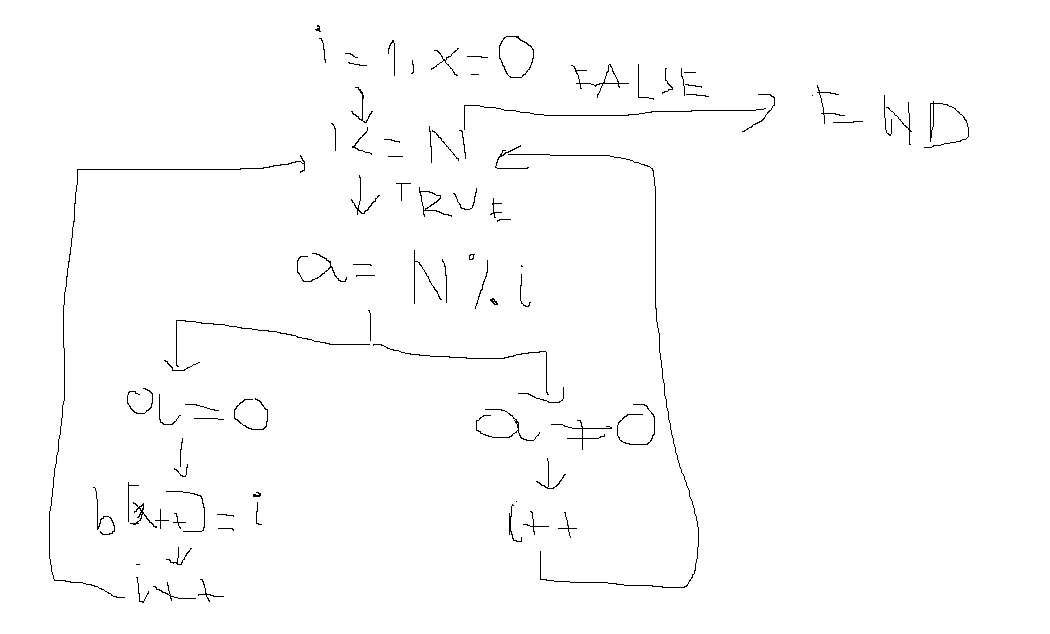 i=1, x=0
FALSE
END
i<=N
TRUE
a=N%i
a=0
a≠0
b[x++]=i
i++
i++